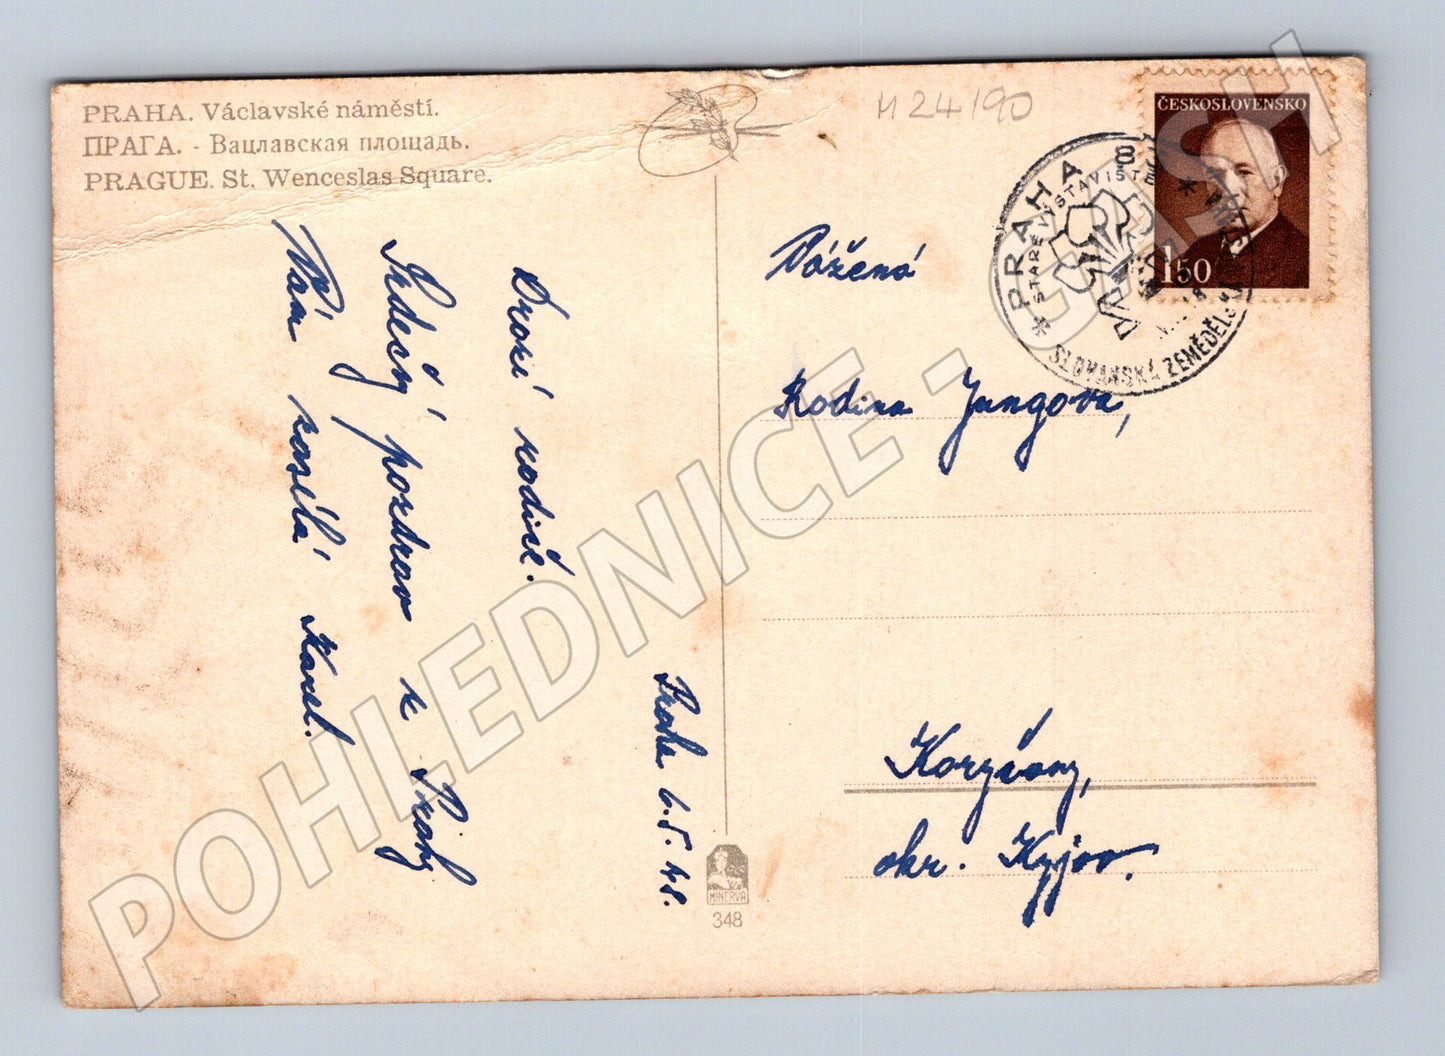 PRAHA. Václavské náměstí.
ПРАГА. - Вацлавская площадь.
PRAGUE. St. Wenceslas Square.
M 24/90
ČESKOSLOVENSKO
1.50
PRAHA 8
STARÉ VÝSTAVIŠTĚ
SLOVANSKÁ ZEMĚDĚLSKÁ
Drazí rodině.
Srdečný pozdrav z Prahy
Vám zasílá Karel.
Praha 6.5.48.
Vážená
Rodina Jungova,
Koryčany,
okr. Kyjov.
MINERVA
348
POHLEDNICE - CASH